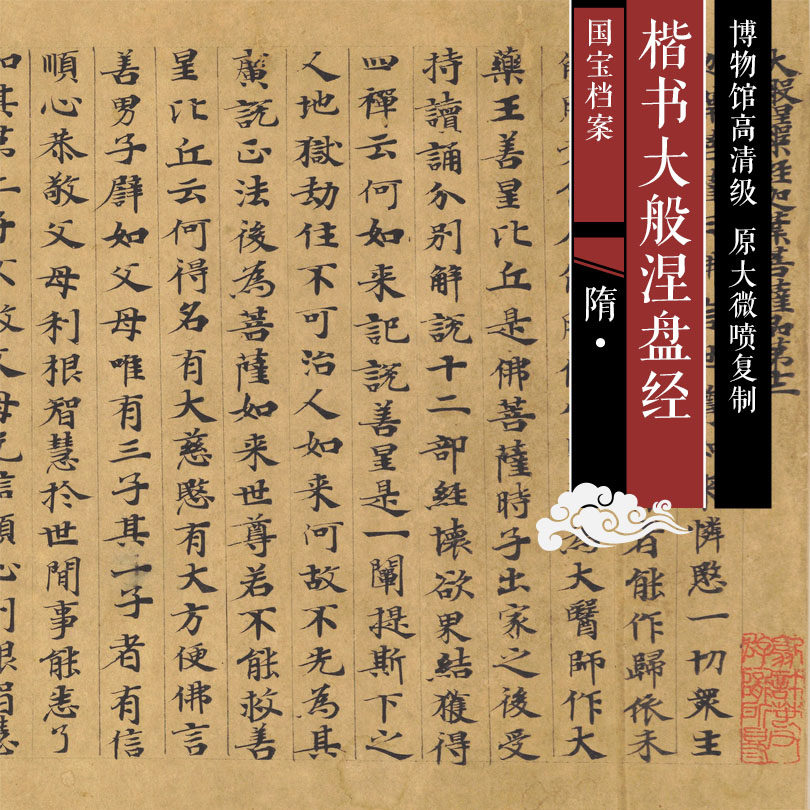 博物馆高清级 原大微喷复制
楷书大般涅盘经
国宝档案
隋·
大般涅槃經迦葉菩薩品第十二
憐愍一切衆生
者能作歸依未
為大醫師作大
藥王善星比丘是佛菩薩時子出家之後受
持讀誦分別解說十二部經壞欲界結獲得
四禪云何如来記說善星是一闡提斯下之
人地獄劫住不可治人如来何故不先為其
廣說正法後為菩薩如来世尊若不能救善
星比丘云何得名有大慈愍有大方便佛言
善男子譬如父母唯有三子其一子者有信
順心恭敬父母利根智慧於世間事能悉了
知其第二子不敬父母无信順心利根智慧